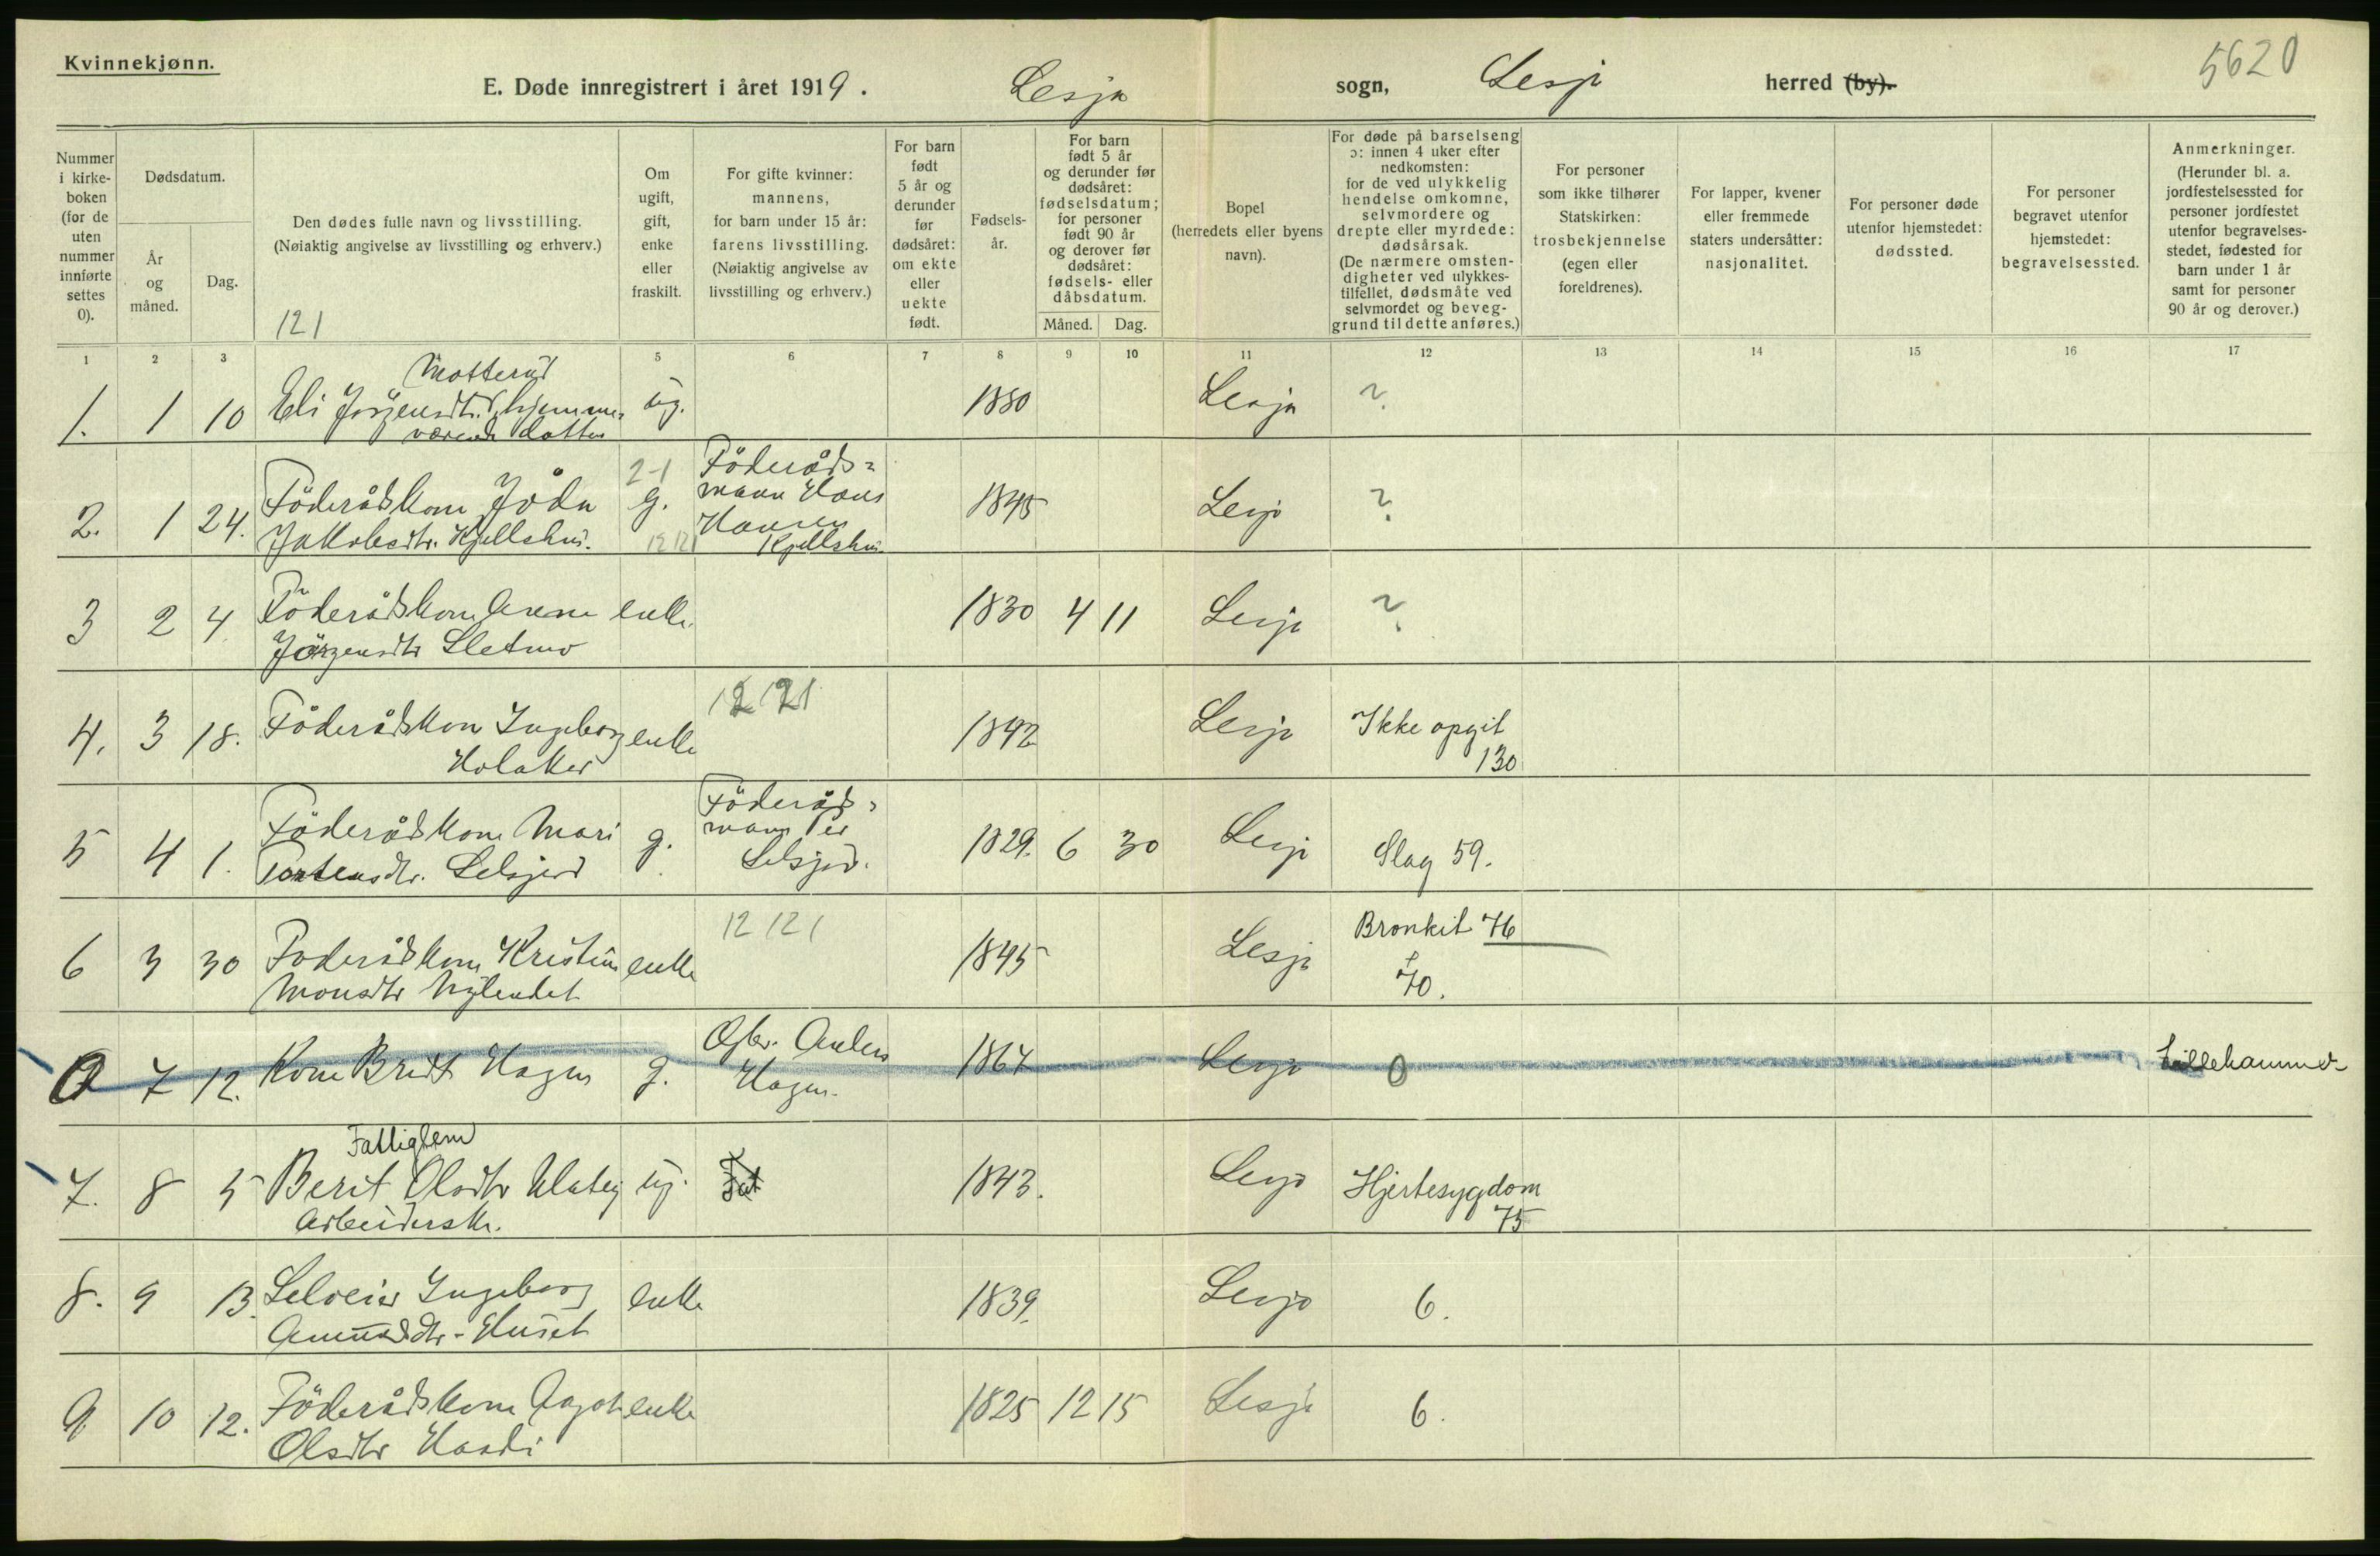 Kvinnekjønn.
5620
E. Døde innregistrert i året 1919. Lesja sogn, Lesja herred (by).
Nummer i kirke-boken (for de uten nummer innførte settes 0).
Dødsdatum.
År og måned.
Dag.
Den dødes fulle navn og livsstilling.
(Nøiaktig angivelse av livsstilling og erhverv.)
121
Om ugift, gift, enke eller fraskilt.
For gifte kvinner: mannens, for barn under 15 år: farens livsstilling. (Nøiaktig angivelse av livsstilling og erhverv.)
For barn født 5 år og derunder før dødsåret: om ekte eller uekte født.
Fødsels-år.
For barn født 5 år og derunder før dødsåret: fødselsdatum; for personer født 90 år og derover før dødsåret: fødsels- eller dåbsdatum.
Måned. Dag.
Bopel (herredets eller byens navn).
For døde på barselseng ɔ: innen 4 uker efter nedkomsten: for de ved ulykkelig hendelse omkomne, selvmordere og drepte eller myrdede: dødsårsak. (De nærmere omsten-digheter ved ulykkes-tilfellet, dødsmåte ved selvmordet og beveg-grund til dette anføres.)
For personer som ikke tilhører Statskirken: trosbekjennelse (egen eller foreldrenes).
For lapper, kvener eller fremmede staters undersåtter: nasjonalitet.
For personer døde utenfor hjemstedet: dødssted.
For personer begravet utenfor hjemstedet: begravelsessted.
Anmerkninger. (Herunder bl. a. jordfestelsessted for personer jordfestet utenfor begravelses-stedet, fødested for barn under 1 år samt for personer 90 år og derover.)
1 2 3 5 6 7 8 9 10 11 12 13 14 15 16 17
Motterud
1. 1 10 Eli Jörgensdtr. hjemme- ug. 1880 Lesja ?
værende datter
2-1 Föderåds-
2. 1 24. Föderådskone Jöda g. mann Hans 1845 Lesja ?
Jakobsdtr. Kjellshus. 12 121 Hansen Kjellshus.
3 2 4. Föderådskone Anne enke. 1830 4 11 Lesja ?
Jörgensdtr Sletmo
12 121
4. 3 18. Föderådskone Ingeborg enke 1842 Lesja Ikke opgit
Holaker 130
Föderåds-
5 4 1. Föderådskone Mari g. mann 1829. 6 30 Lesja Slag 59.
Tostensdtr. Selsjord Selsjord.
12 121
6 3 30 Föderådskone Kristine enke 1845 Lesja Bronkit 76
Monsdtr Nylendet 70.
0 7 12. Kone Brit Hagen g. Gbr. Anders Hagen. 1867 Lesja 0 Lillehammer
Fattiglem
7. 8 5 Berit Olsdtr ug. Fat 1843. Lesja Hjertesygdom
Arbeiderske. 75
8. 9 13. Selveier Ingeborg enke 1839. Lesja 6.
Amundsdtr. Huset
9. 10 12. Föderådskone Aagot enke 1825 12 15 Lesja 6.
Olsdtr